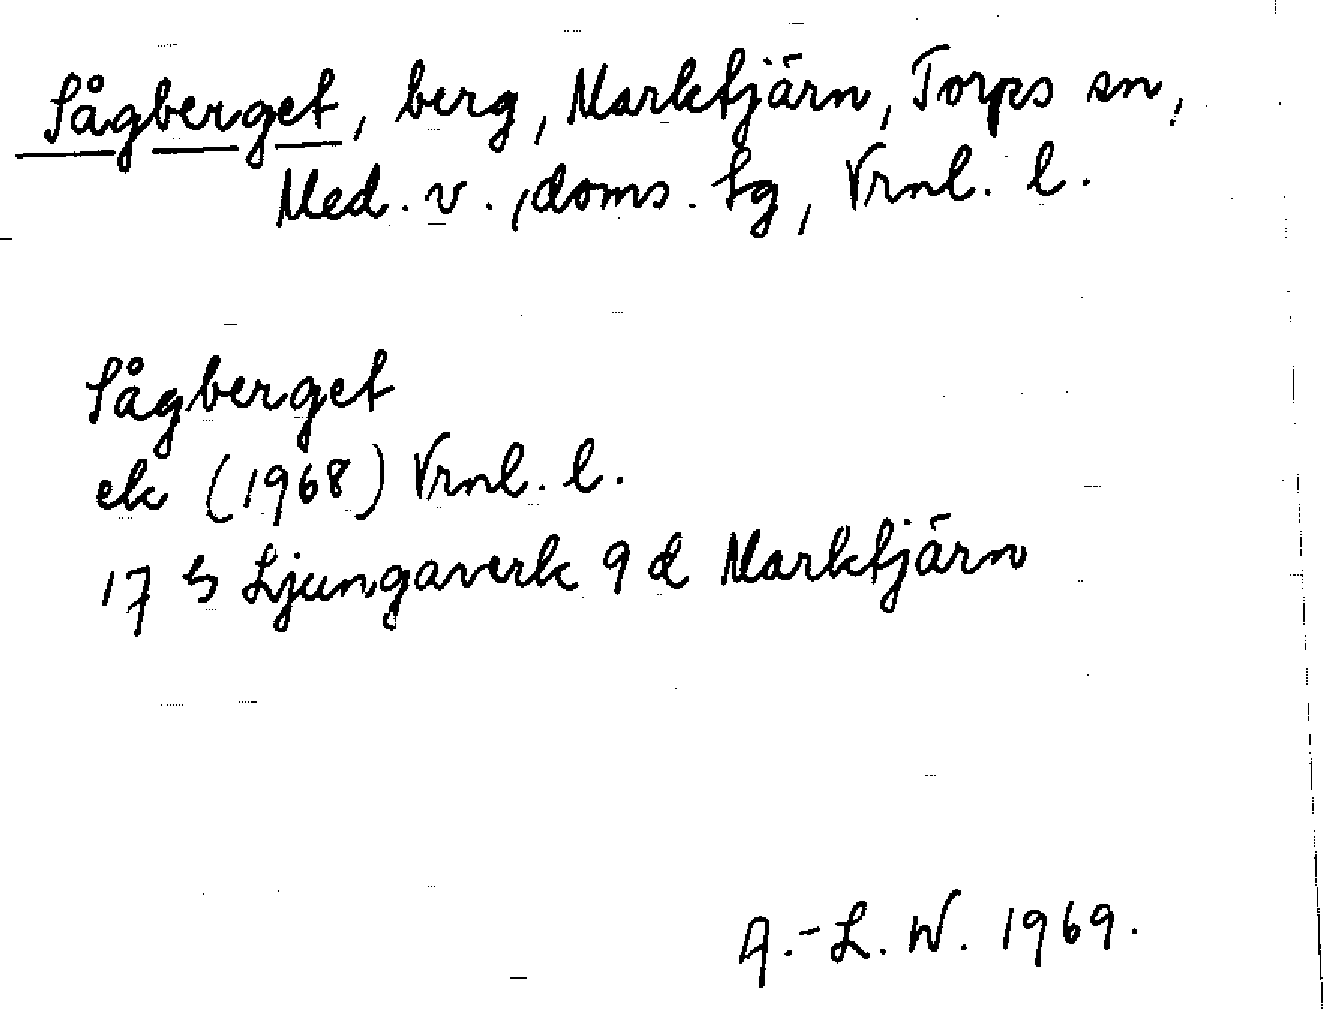 Sågberget, berg, Marktjärn, Torps sn,
Med. v., doms. sg, Vrnl. l.
Sågberget
ek (1968) Vrnl. l.
17 G Ljungaverk 9 d Marktjärn
A.-L. W. 1969.